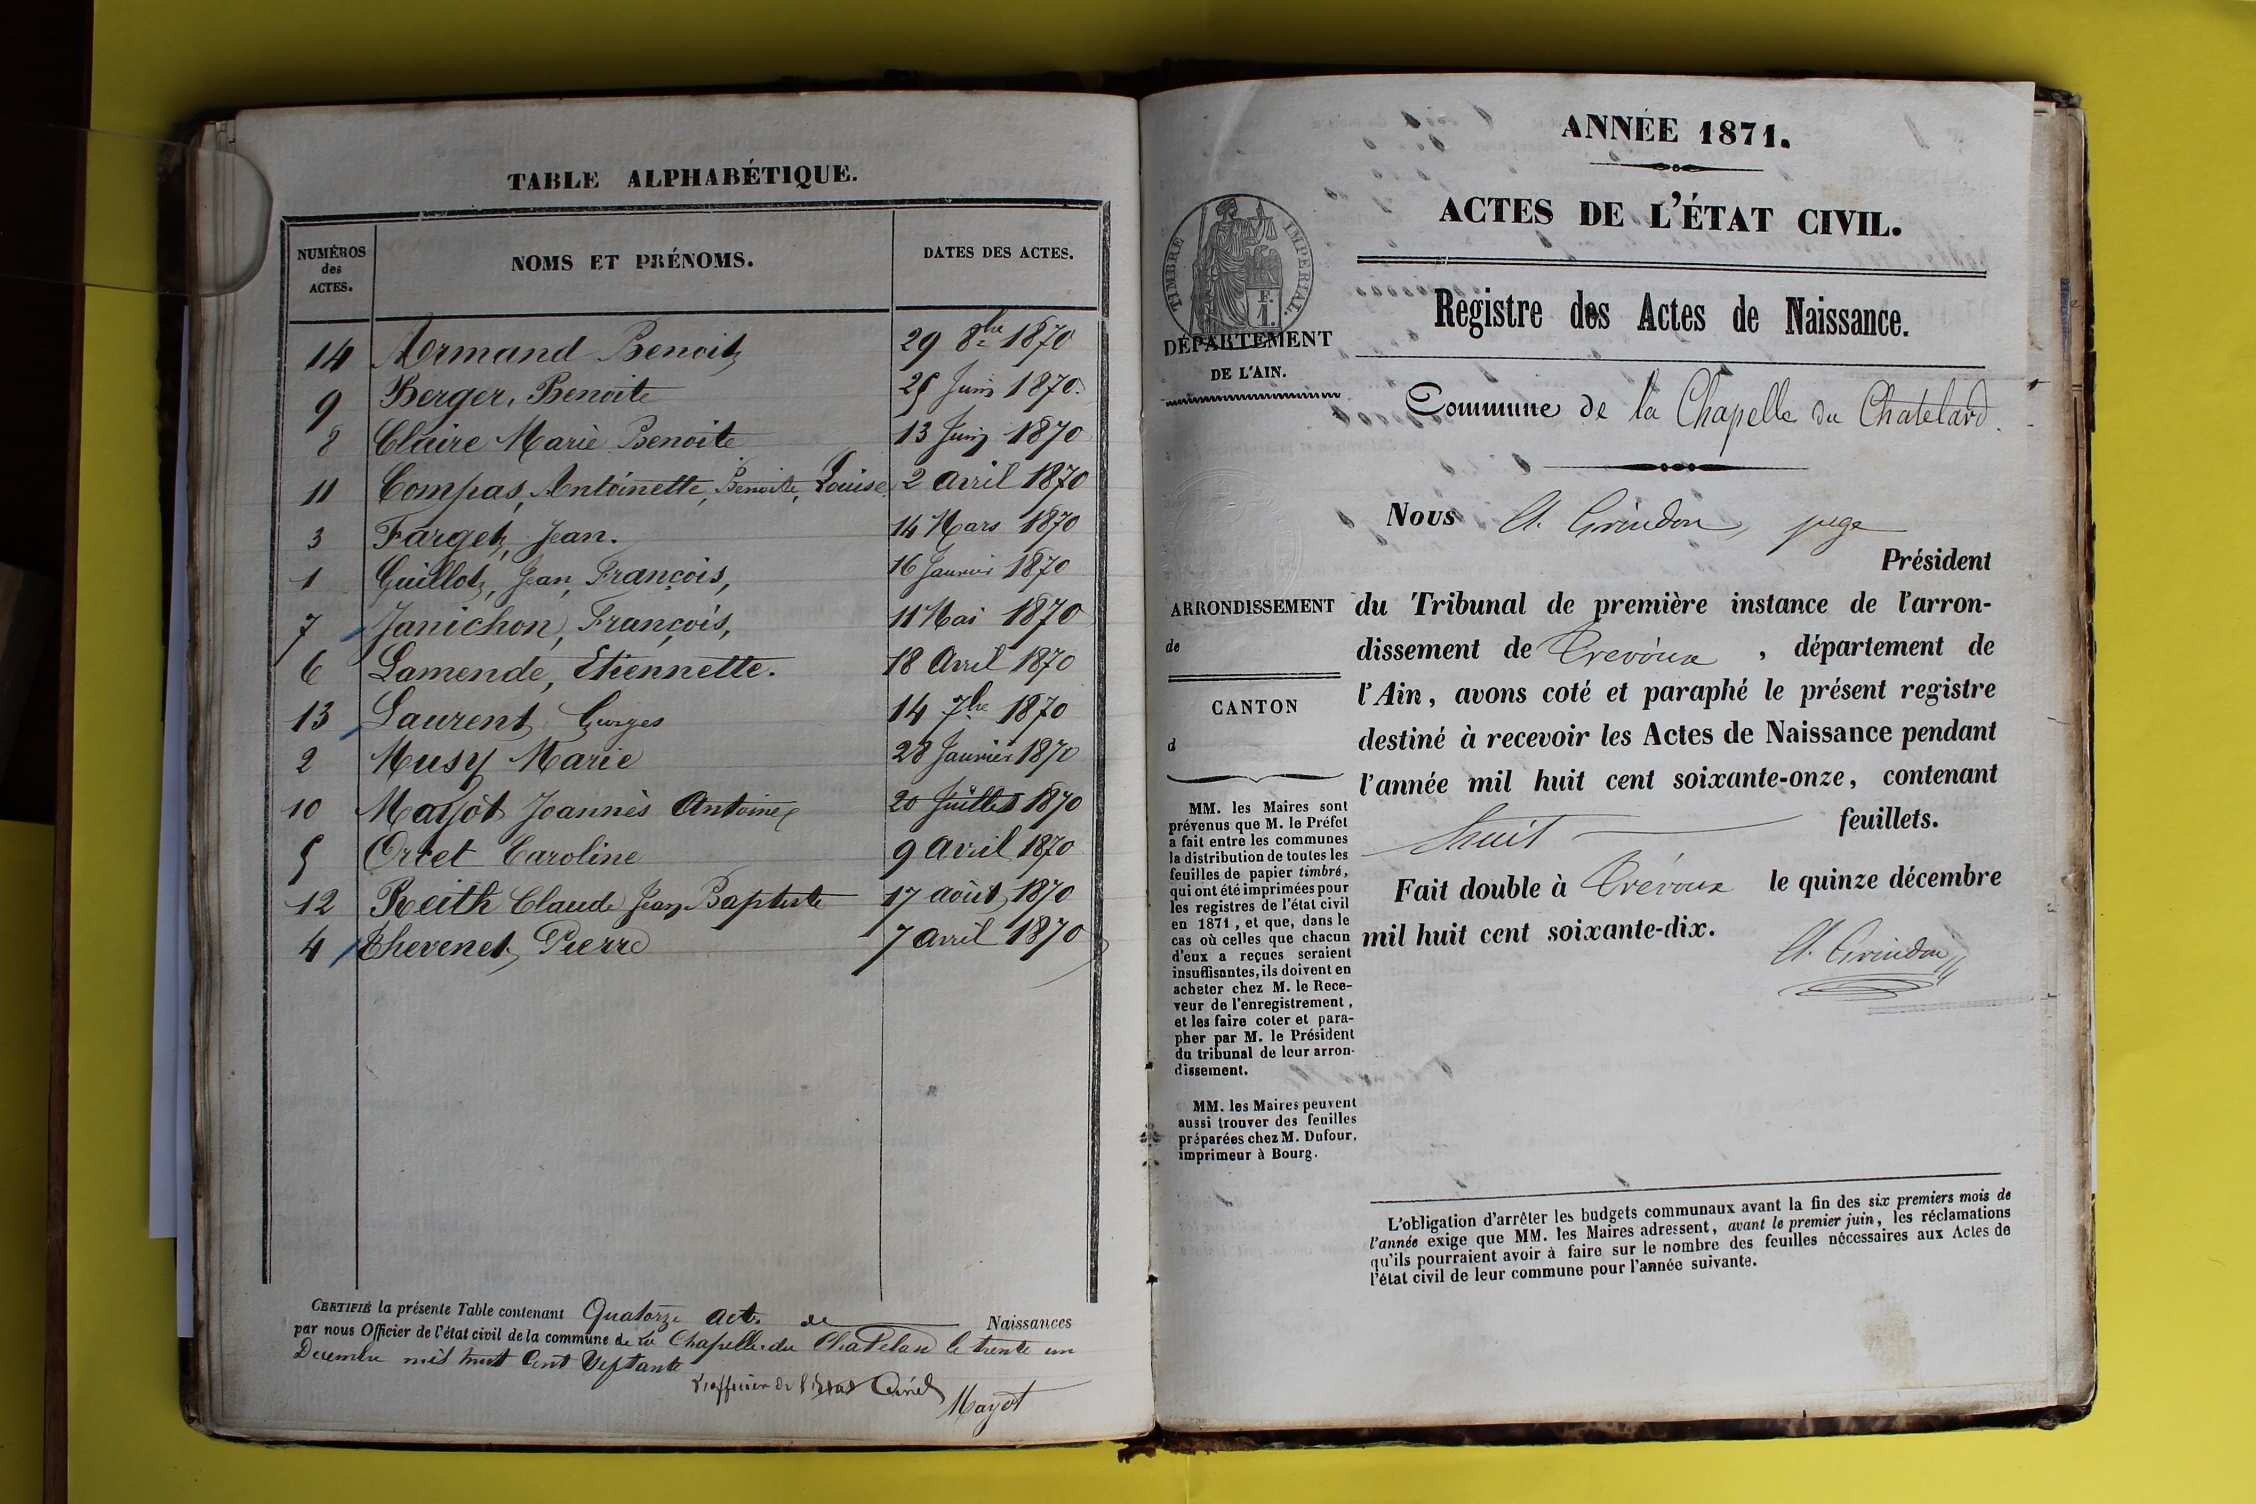 TABLE ALPHABÉTIQUE.
NUMÉROS des ACTES. NOMS ET PRÉNOMS. DATES DES ACTES.
14 Armand Benoit 29 8bre 1870
9 Berger, Benoite 25 Juin 1870.
8 Claire Marie Benoite 13 Juin 1870
11 Compas, Antoinette, Benoite, Louise 2 avril 1870
3 Farget, Jean. 14 Mars 1870
1 Guillot, Jean, François, 16 Janvier 1870
7 Janichon, François, 11 Mai 1870
6 Lamende, Etiennette. 18 Avril 1870
13 Laurent Georges 14 7bre 1870
2 Musy Marie 28 Janvier 1870
10 Mayot Joannès Antoine 20 Juillet 1870
5 Orcet Caroline 9 Avril 1870
12 Reith Claude Jean Baptiste 17 août 1870
4 Thevenet, Pierre 7 avril 1870
CERTIFIÉ la présente Table contenant Quatorze act. de Naissances
par nous Officier de l'état civil de la commune de La Chapelle du Chatelard le trente un
Decembre mil huit Cent Septante
L'officier de l'Etat Civil
Mayot
ANNÉE 1871.
ACTES DE L'ÉTAT CIVIL.
TIMBRE IMPÉRIAL.
F.
1.
DÉPARTEMENT
DE L'AIN.
Registre des Actes de Naissance.
Commune de la Chapelle du Chatelard.
Nous A. Grindon, juge
Président
ARRONDISSEMENT
de
CANTON
d
du Tribunal de première instance de l'arron-
dissement de Trevoux, département de
l'Ain, avons coté et paraphé le présent registre
destiné à recevoir les Actes de Naissance pendant
l'année mil huit cent soixante-onze, contenant
huit feuillets.
Fait double à Trévoux le quinze décembre
mil huit cent soixante-dix.
A. Grindon
MM. les Maires sont
prévenus que M. le Préfet
a fait entre les communes
la distribution de toutes les
feuilles de papier timbré,
qui ont été imprimées pour
les registres de l'état civil
en 1871, et que, dans le
cas où celles que chacun
d'eux a reçues seraient
insuffisantes, ils doivent en
acheter chez M. le Rece-
veur de l'enregistrement,
et les faire coter et para-
pher par M. le Président
du tribunal de leur arron-
dissement.
MM. les Maires peuvent
aussi trouver des feuilles
préparées chez M. Dufour,
imprimeur à Bourg.
L'obligation d'arrêter les budgets communaux avant la fin des six premiers mois de
l'année exige que MM. les Maires adressent, avant le premier juin, les réclamations
qu'ils pourraient avoir à faire sur le nombre des feuilles nécessaires aux Actes de
l'état civil de leur commune pour l'année suivante.